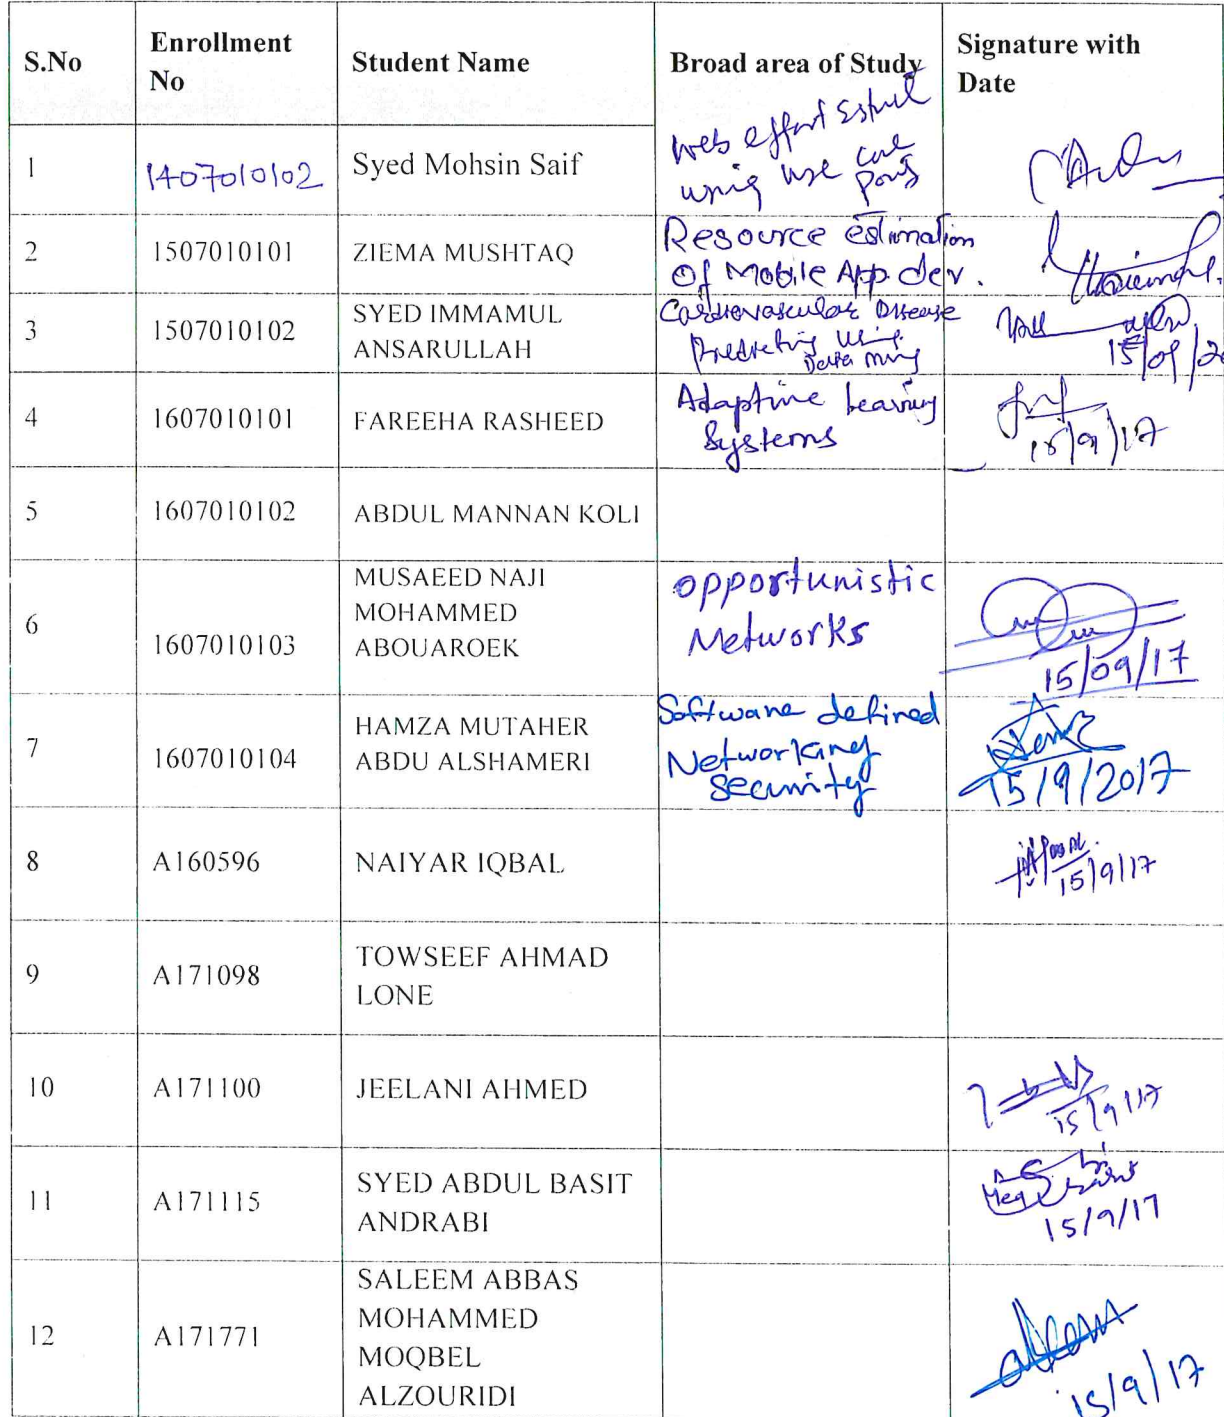 S.No Enrollment No Student Name Broad area of Study Signature with Date
1 1407010102 Syed Mohsin Saif web effort
using use
2 1507010101 ZIEMA MUSHTAQ Resource estimation
Of Mobile App dev.
3 1507010102 SYED IMMAMUL
ANSARULLAH Cardiovascular Disease
using
Data
15/09/20
4 1607010101 FAREEHA RASHEED Adaptive Learning
Systems 15/9/17
5 1607010102 ABDUL MANNAN KOLI
6 1607010103 MUSAEED NAJI
MOHAMMED
ABOUAROEK opportunistic
Networks 15/09/17
7 1607010104 HAMZA MUTAHER
ABDU ALSHAMERI Software defined
Networking
Security 15/9/2017
8 A160596 NAIYAR IQBAL 15/9/17
9 A171098 TOWSEEF AHMAD
LONE
10 A171100 JEELANI AHMED 15/9/17
11 A171115 SYED ABDUL BASIT
ANDRABI 15/9/17
12 A171771 SALEEM ABBAS
MOHAMMED
MOQBEL
ALZOURIDI 15/9/17